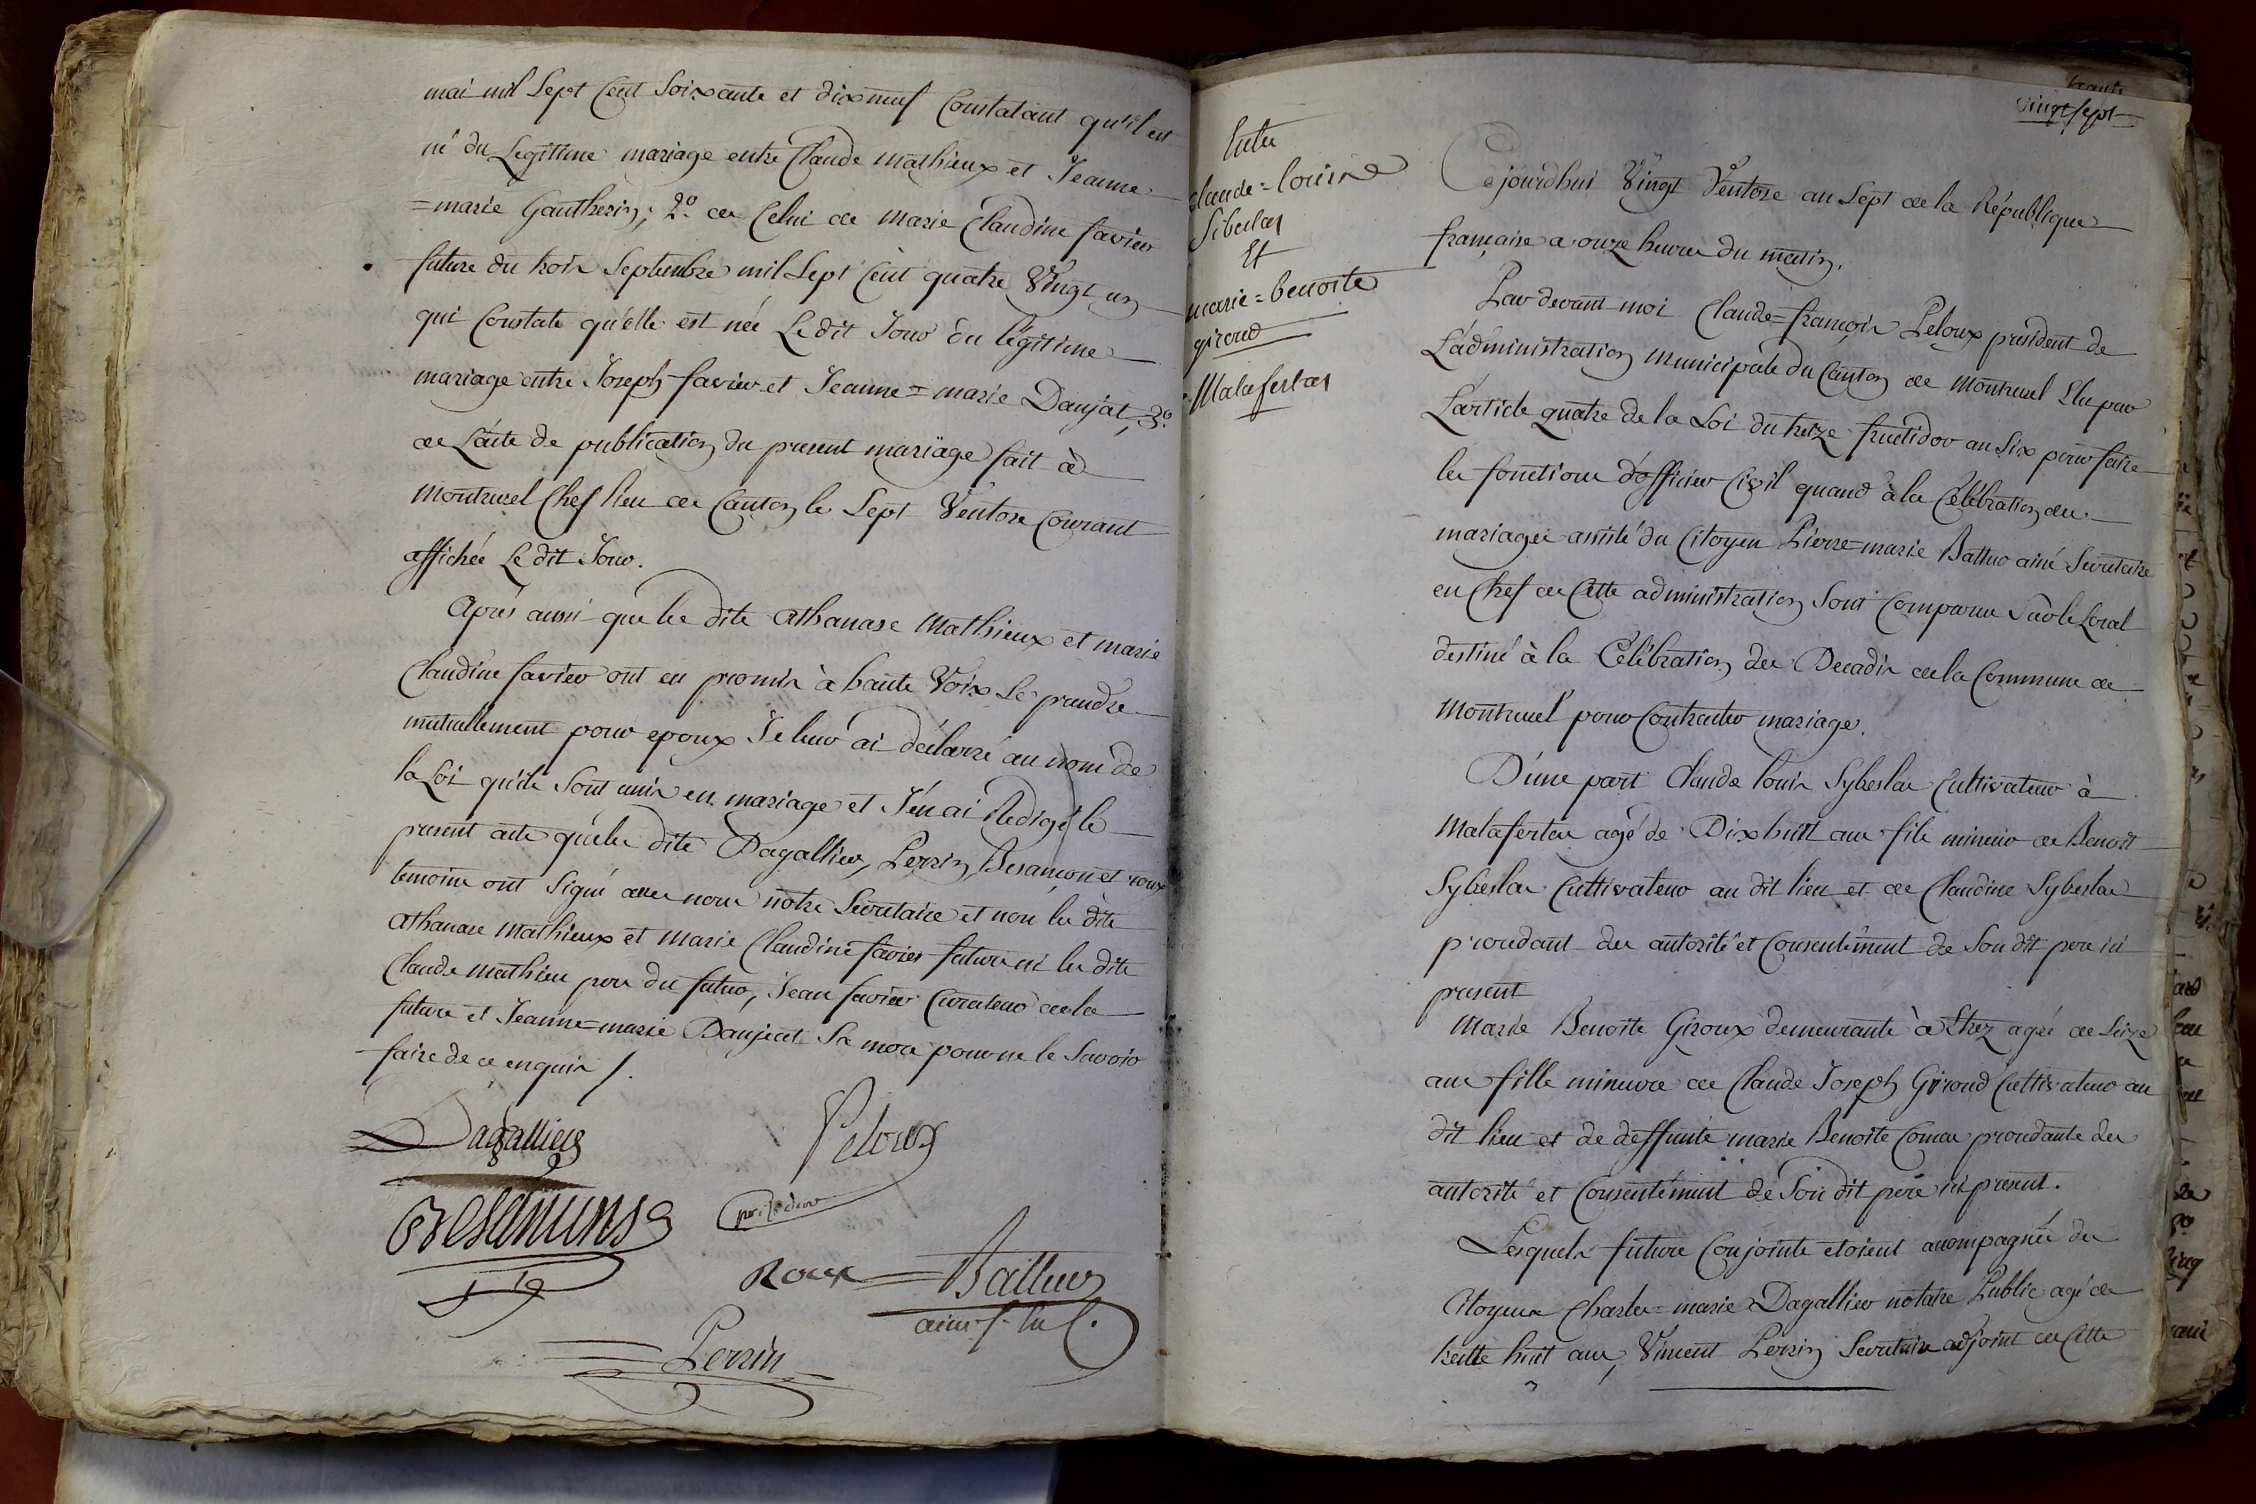 mai mil Sept Cent Soixante et dix neuf Constatant qu'il est
né du Legitime mariage entre Claude Mathieux et Jeanne
=marie Gautherin; 2.º de Celui de Marie Claudine favier
future du trois Septembre mil Sept Cent quatre Vingt un
qui Constate qu'elle est née Le dit Jour du légitime
mariage entre Joseph favier et Jeanne=marie Daujat, 3º
de L'acte de publication du present mariage fait à
Montreuel Chef lieu de Canton le Sept Ventose Courant
affichée Le dit Jour.
Après aussi que les dits Athanase Mathieux et marie
Claudine favier ont eu promis à haute Voix Se prendre
mutuellement pour epoux Je leur ai déclarré au nom de
la Loi qu'ils Sont unis en mariage et J'en ai Redigé le
present acte que les dits Dagallier, Perrin, Besançon et roux
temoins ont Signé avec nous notre Secretaire et non les dits
Athanase Mathieux et Marie Claudine favier futurs ni les dits
Claude Mathieu pere du futur, Jean favier Curateur de la
future et Jeanne=marie Daujeat Sa mere pour ne le Savoir
faire de ce enquis /.
Dagallier
Peloux
président
Besançons
Roux
Battur
ainé S. en C.
Perrin
trente
vingt sept
Entre
Claude=louis
Siberlas
Et
marie=benoite
giroud
Malafertas
Cejourdhui Vingt Ventose an Sept de la République
française a onze heures du matin.
Par devant moi Claude=françois Peloux président de
L'administration municipale du Canton de Montreuel Elu par
L'article quatre de la Loi du treize fructidor an Six pour faire
les fonctions d'officier Civil quand à la Célébration des
mariages assisté du Citoyen Pierre=marie Battur ainé Secretaire
en Chef de Cette administration Sont Comparus Sur le Local
destiné à la Célébration des Decadis de la Commune de
Montreuel pour Contracter mariage.
D'une part Claude Louis Syberlas Cultivateur à
Malafertas agé de Dix huit ans fils mineur de Benoit
Syberlas Cultivateur au dit lieu et de Claudine Syberlas
procedant des autorité et Consentement de Son dit pere ici
present
Marie Benoite Giroux demeurante à Chez agée de Seize
ans fille mineure de Claude Joseph Giroud Cultivateur au
dit lieu et de deffunte marie Benoite Comas procedante des
autorité et Consentement de Son dit père ici present.
Lesquels futurs Conjoints etoient accompagnés des
Citoyens Charles=marie Dagallier notaire Public agé de
trente huit ans, Vincent Perrin Secretaire adjoint de Cette